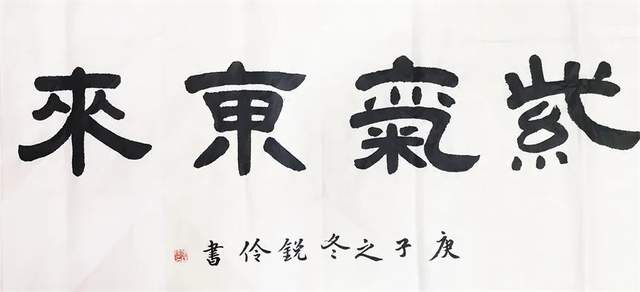 紫氣東來
庚子之冬銳伶書